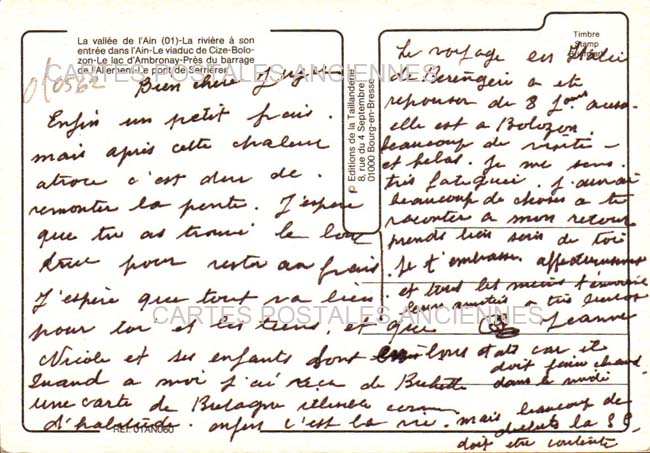 La vallée de l'Ain (01)-La rivière à son
entrée dans l'Ain-Le viaduc de Cize-Bolo-
zon-Le lac d'Ambronay-Près du barrage
de l'Allement-Le pont de Serrières
010562
CARTES POSTALES ANCIENNES
Bien chère
Enfin un petit frais.
mais après cette chaleur
atroce c'est dur de
remonter la pente. J'espère
que tu as trouvé le bon
truc pour rester au frais.
J'espère que tout va bien
pour toi et les tiens, et que
Nicole et ses enfants sont en bons
Quand a moi j'ai reçu de
une carte de Bretagne
d'habitude. enfin c'est la vie.
REF. 01AN060
© Editions de la Taillanderie
8, rue du 4 Septembre
01000 Bourg-en-Bresse
Timbre
Stamp
Le voyage en Italie
de Berengère a été
repousser de 8 jours aussi
elle est a Bolozon.
beaucoup de visite
et helas. Je me sens
très fatiguée. J'aurai
beaucoup de choses a te
raconter a mon retour
prends bien soin de toi
Je t'embrasse affectueusement
et tous les miens t'envoie
leurs amitiés a très
Jeanne
CARTES POSTALES ANCIENNES
car il
doit faire chaud
dans le midi
mais beaucoup de
la SS
doit être contente